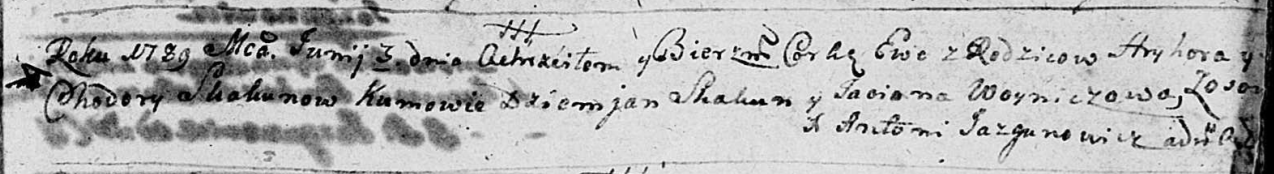 Roku 1789 Mcā Junij 3 dnia Ochrzciłem y Bierzm̃ Corkę Ewę z Rodzicow Hryhora y
Chodory Skakunow Kumowie Dziemjan Skakun y Taciana Woyniczowa,
X Antoni Jazgunowicz